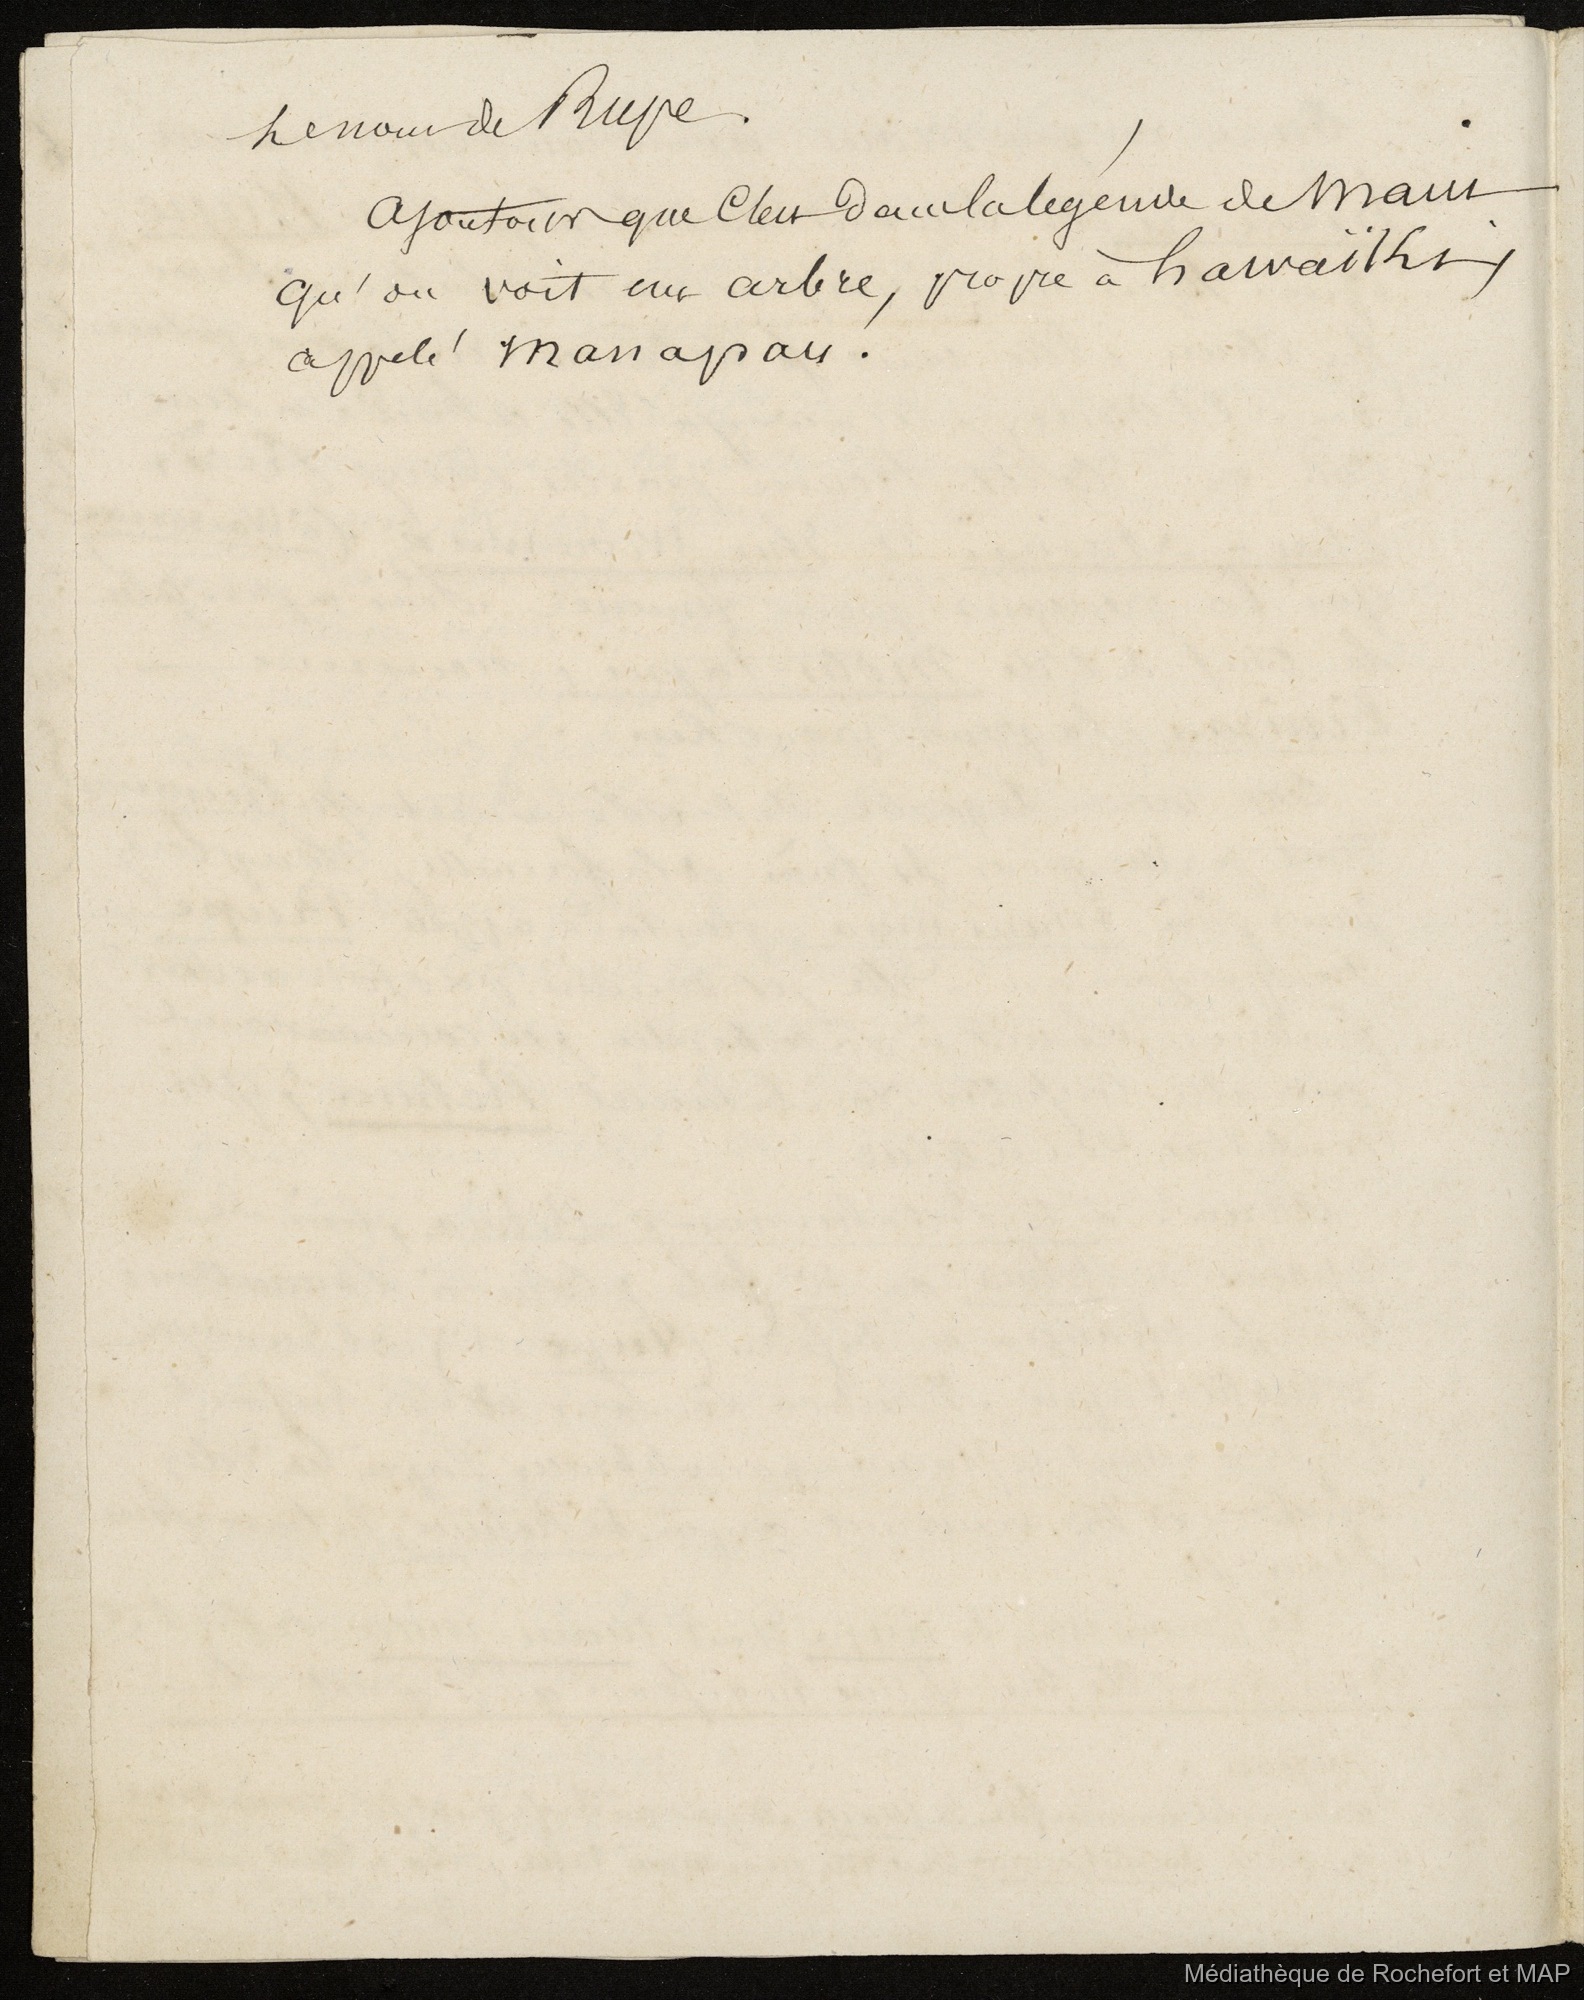 le nom de Rupe.
Ajoutons que c'est dans la légende de Maui
qu'on voit un arbre, propre à hawaïki,
appelé manapau.
Médiathèque de Rochefort et MAP